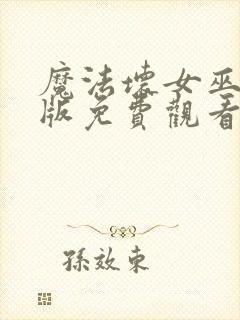 魔法壞女巫
版免費觀看
孫效東